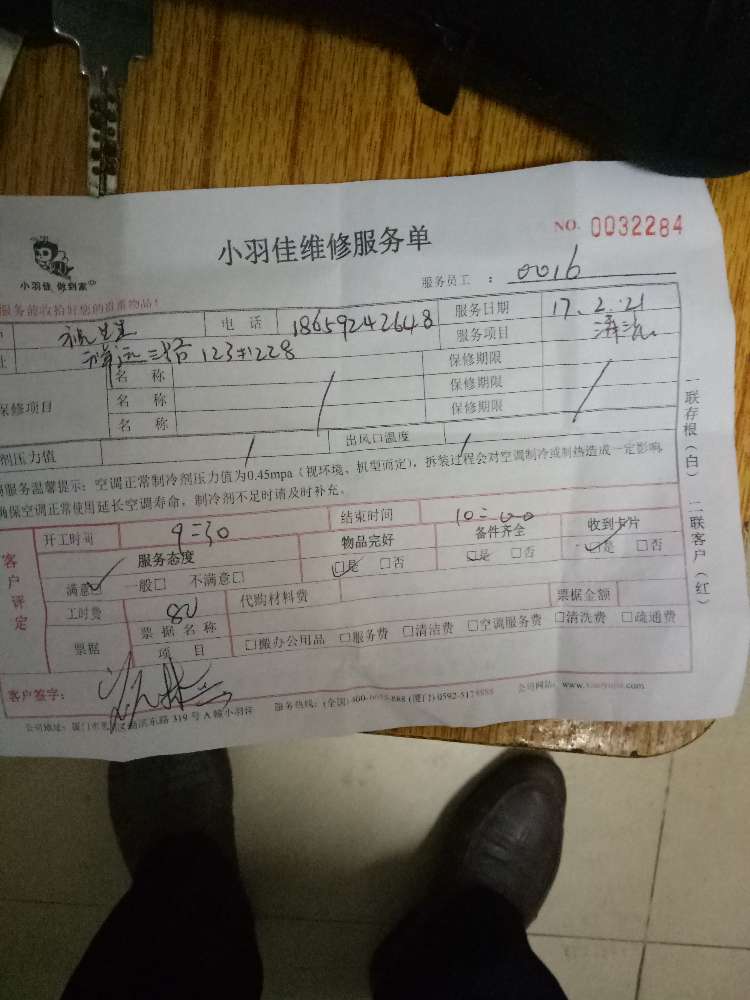 小羽佳维修服务单
NO. 0032284
小羽佳 做到家
服务员工 : 0016
服务前收拾好您的贵重物品!
电 话 18659242648 服务日期 17.2.21
123#1228 服务项目 清洗
保修项目 名 称 保修期限
名 称 保修期限
名 称 保修期限
剂压力值 出风口温度
服务温馨提示:空调正常制冷剂压力值为0.45mpa(视环境、机型而定),拆装过程会对空调制冷或制热造成一定影响,
确保空调正常使用延长空调寿命,制冷剂不足时请及时补充。
一联存根(白) 二联客户(红)
客户评定
开工时间 9:30 结束时间 10:00
服务态度 物品完好 备件齐全 收到卡片
满意☑ 一般□ 不满意□ ☑是 □否 ☑是 □否 ☑是 □否
工时费 80 代购材料费 票据金额
票据 票据名称
项 目 □搬办公用品 □服务费 □清洁费 □空调服务费 □清洗费 □疏通费
客户签字:
东路 319 号 A 幢小羽佳 服务热线:(全国) (厦门) 公司网站: